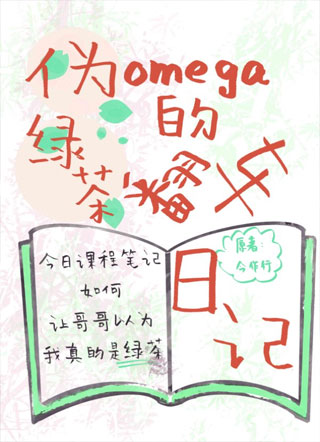 伪omega
的
绿茶翻车
日记
原著
今作行
今日课程笔记
如何
让哥哥以为
我真的是绿茶